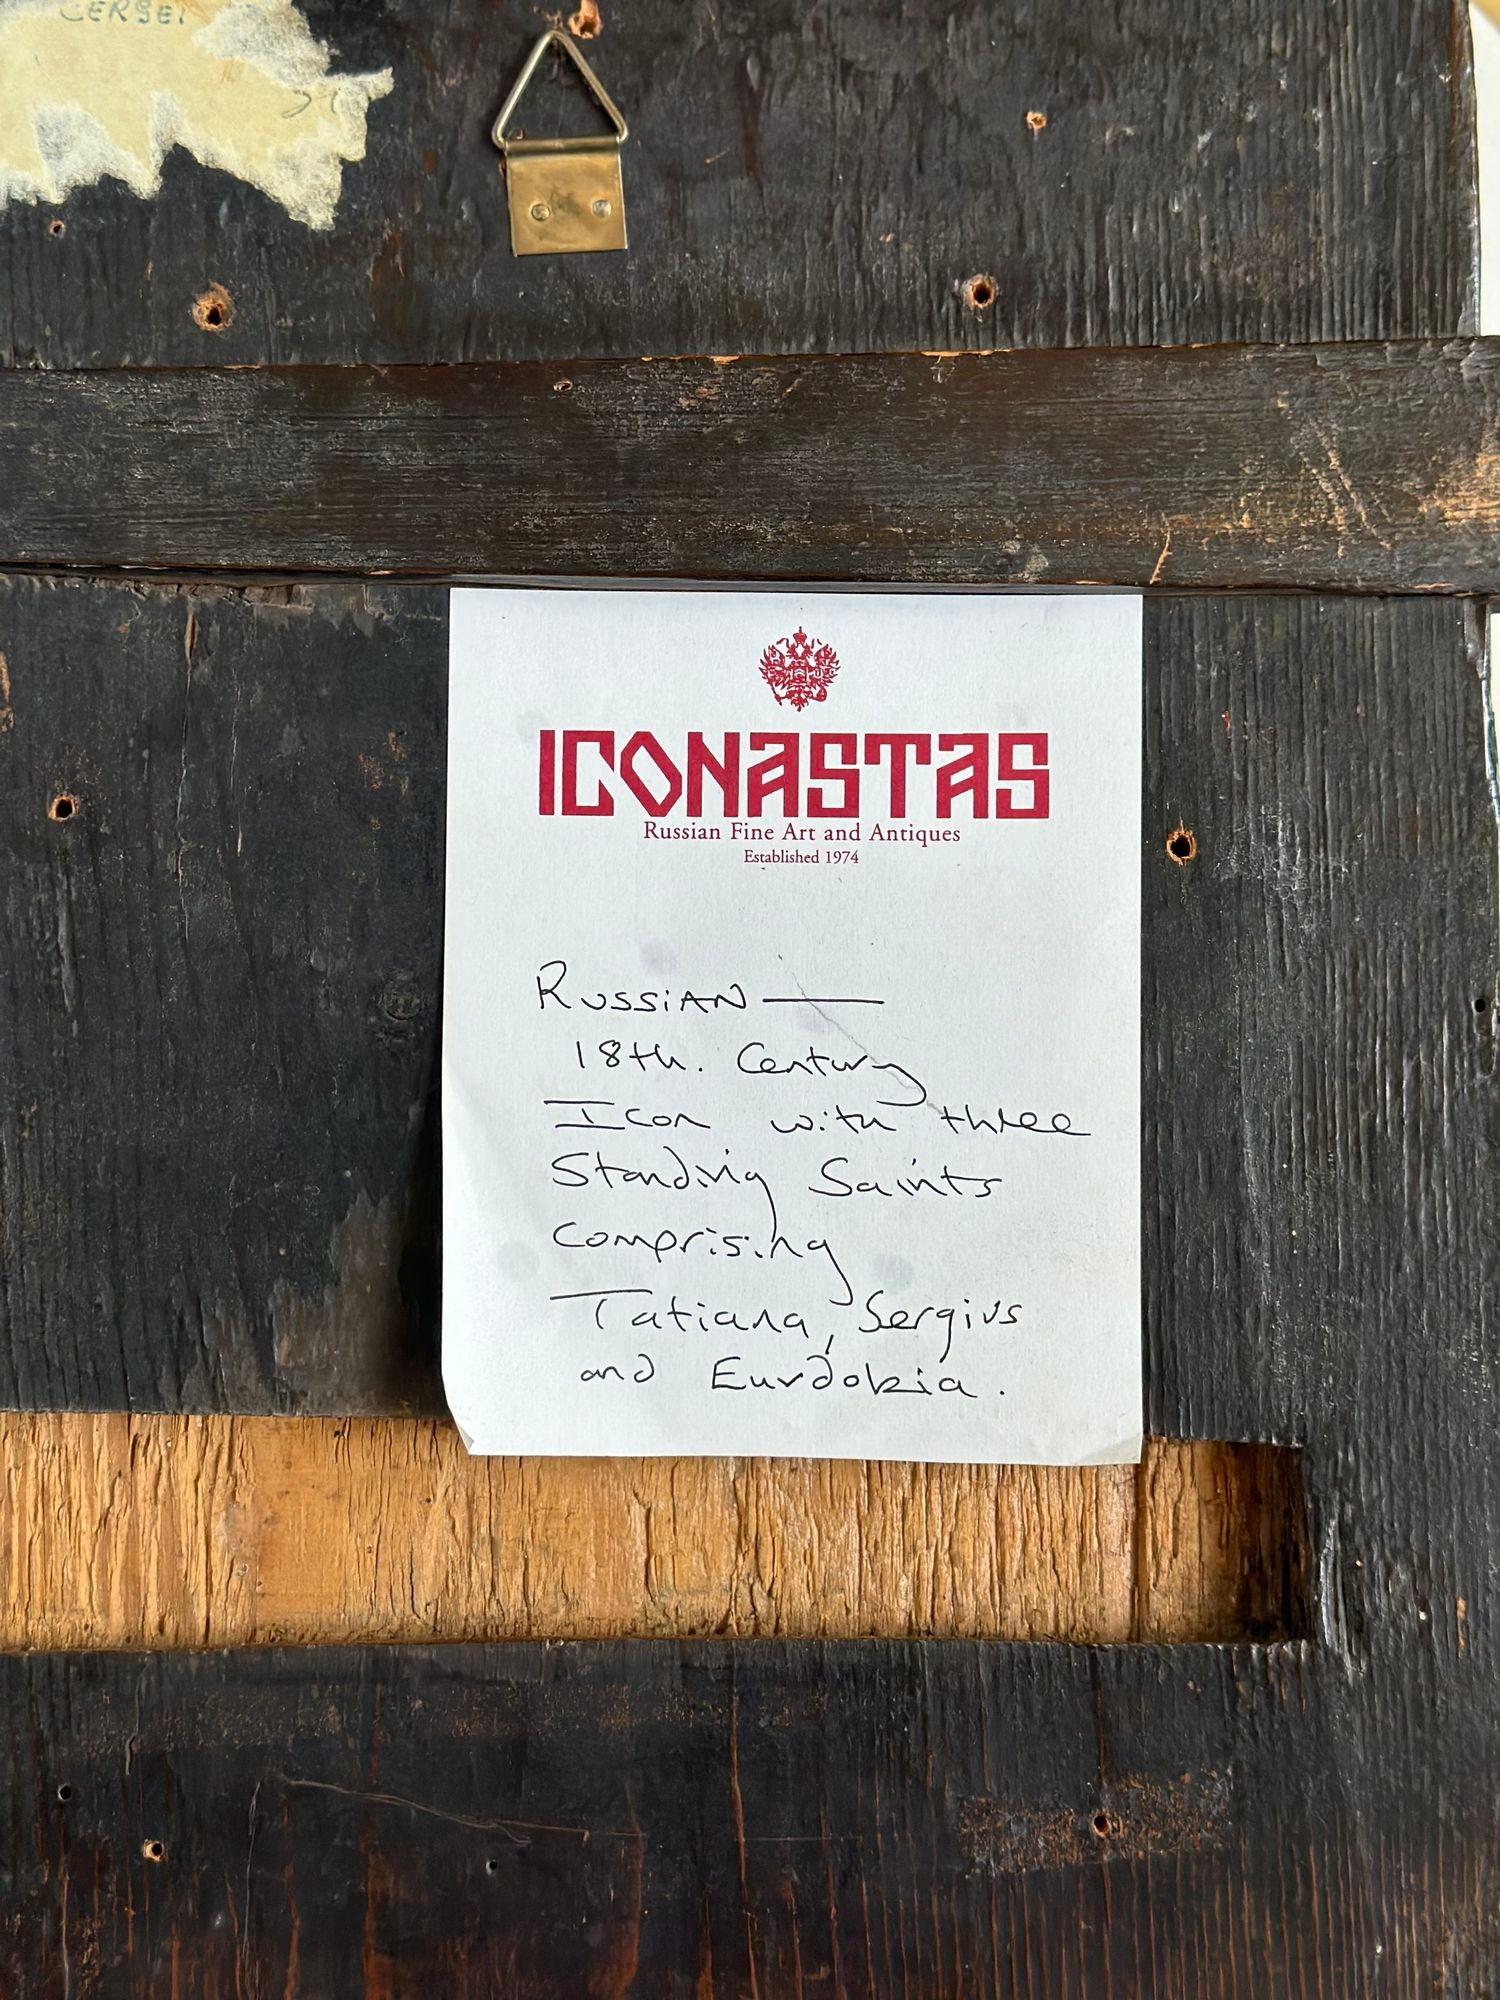 CERGEI
ICONASTAS
Russian Fine Art and Antiques
Established 1974
RUSSIAN —
18th. Century
Icon with three
Standing Saints
Comprising
Tatiana, Sergius
and Eurdokia.